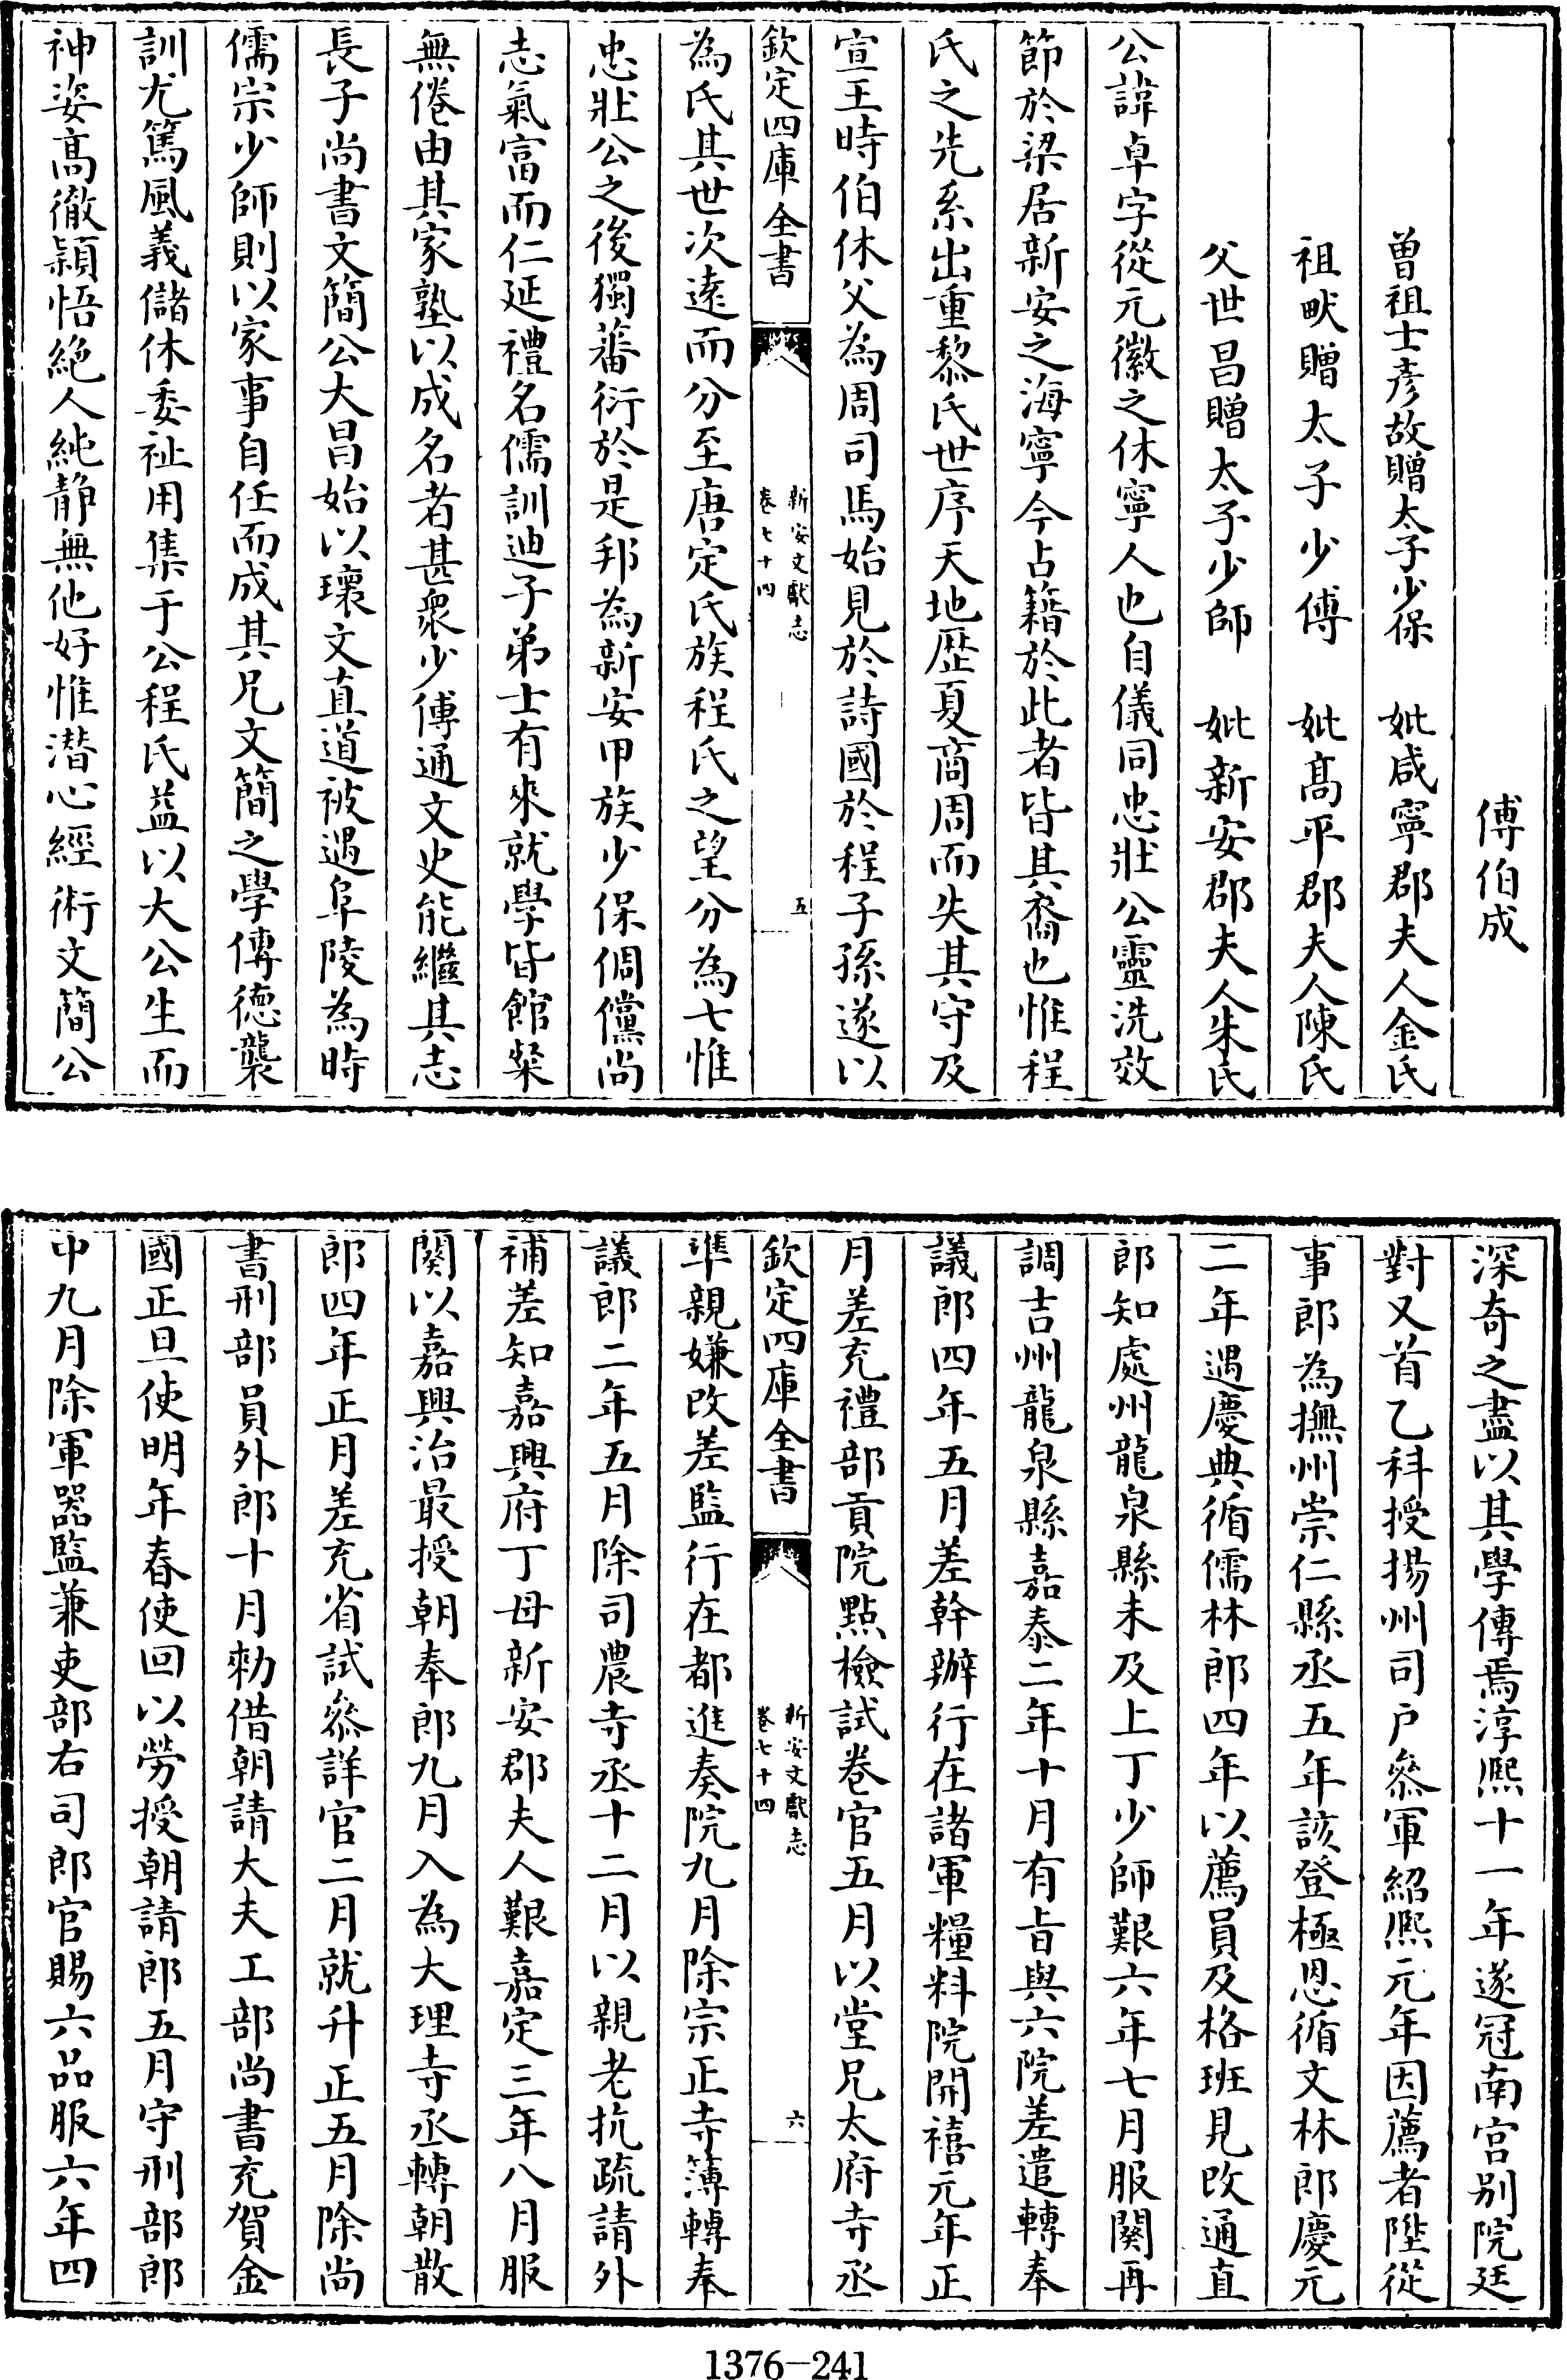 傅伯成
曽祖士彦故贈太子少保　妣咸寧郡夫人金氏
祖畎贈太子少傅　妣髙平郡夫人陳氏
父世昌贈太子少師　妣新安郡夫人朱氏
公諱卓字從元徽之休寧人也自儀同忠壯公靈洗效
節於梁居新安之海寧今占籍於此者皆其裔也惟程
氏之先系出重黎氏世序天地歴夏商周而失其守及
宣王時伯休父為周司馬始見於詩國於程子孫遂以
欽定四庫全書
新安文獻志
卷七十四
五
為氏其世次遠而分至唐定氏族程氏之望分為七惟
忠壯公之後獨蕃衍於是邦為新安甲族少保倜儻尚
志氣富而仁延禮名儒訓迪子弟士有來就學皆館粲
無倦由其家塾以成名者甚衆少傅通文史能繼其志
長子尚書文簡公大昌始以瓌文直道被遇阜陵為時
儒宗少師則以家事自任而成其兄文簡之學傳德襲
訓尤篤風義儲休委祉用集于公程氏益以大公生而
神姿髙徹穎悟絶人純静無他好惟潛心經術文簡公
深奇之盡以其學傳焉淳熙十一年遂冠南宫别院廷
對又首乙科授揚州司户叅軍紹熙元年因薦者陞從
事郎為撫州崇仁縣丞五年該登極恩循文林郎慶元
二年遇慶典循儒林郎四年以薦員及格班見改通直
郎知處州龍泉縣未及上丁少師艱六年七月服闋再
調吉州龍泉縣嘉泰二年十月有旨與六院差遣轉奉
議郎四年五月差幹辦行在諸軍糧料院開禧元年正
月差充禮部貢院㸃檢試卷官五月以堂兄太府寺丞
欽定四庫全書
新安文獻志
卷七十四
六
準親嫌改差監行在都進奏院九月除宗正寺簿轉奉
議郎二年五月除司農寺丞十二月以親老抗疏請外
補差知嘉興府丁母新安郡夫人艱嘉定三年八月服
闋以嘉興治最授朝奉郎九月入為大理寺丞轉朝散
郎四年正月差充省試叅詳官二月就升正五月除尚
書刑部員外郎十月勑借朝請大夫工部尚書充賀金
國正旦使明年春使回以勞授朝請郎五月守刑部郎
中九月除軍器監兼吏部右司郎官賜六品服六年四
1376-241